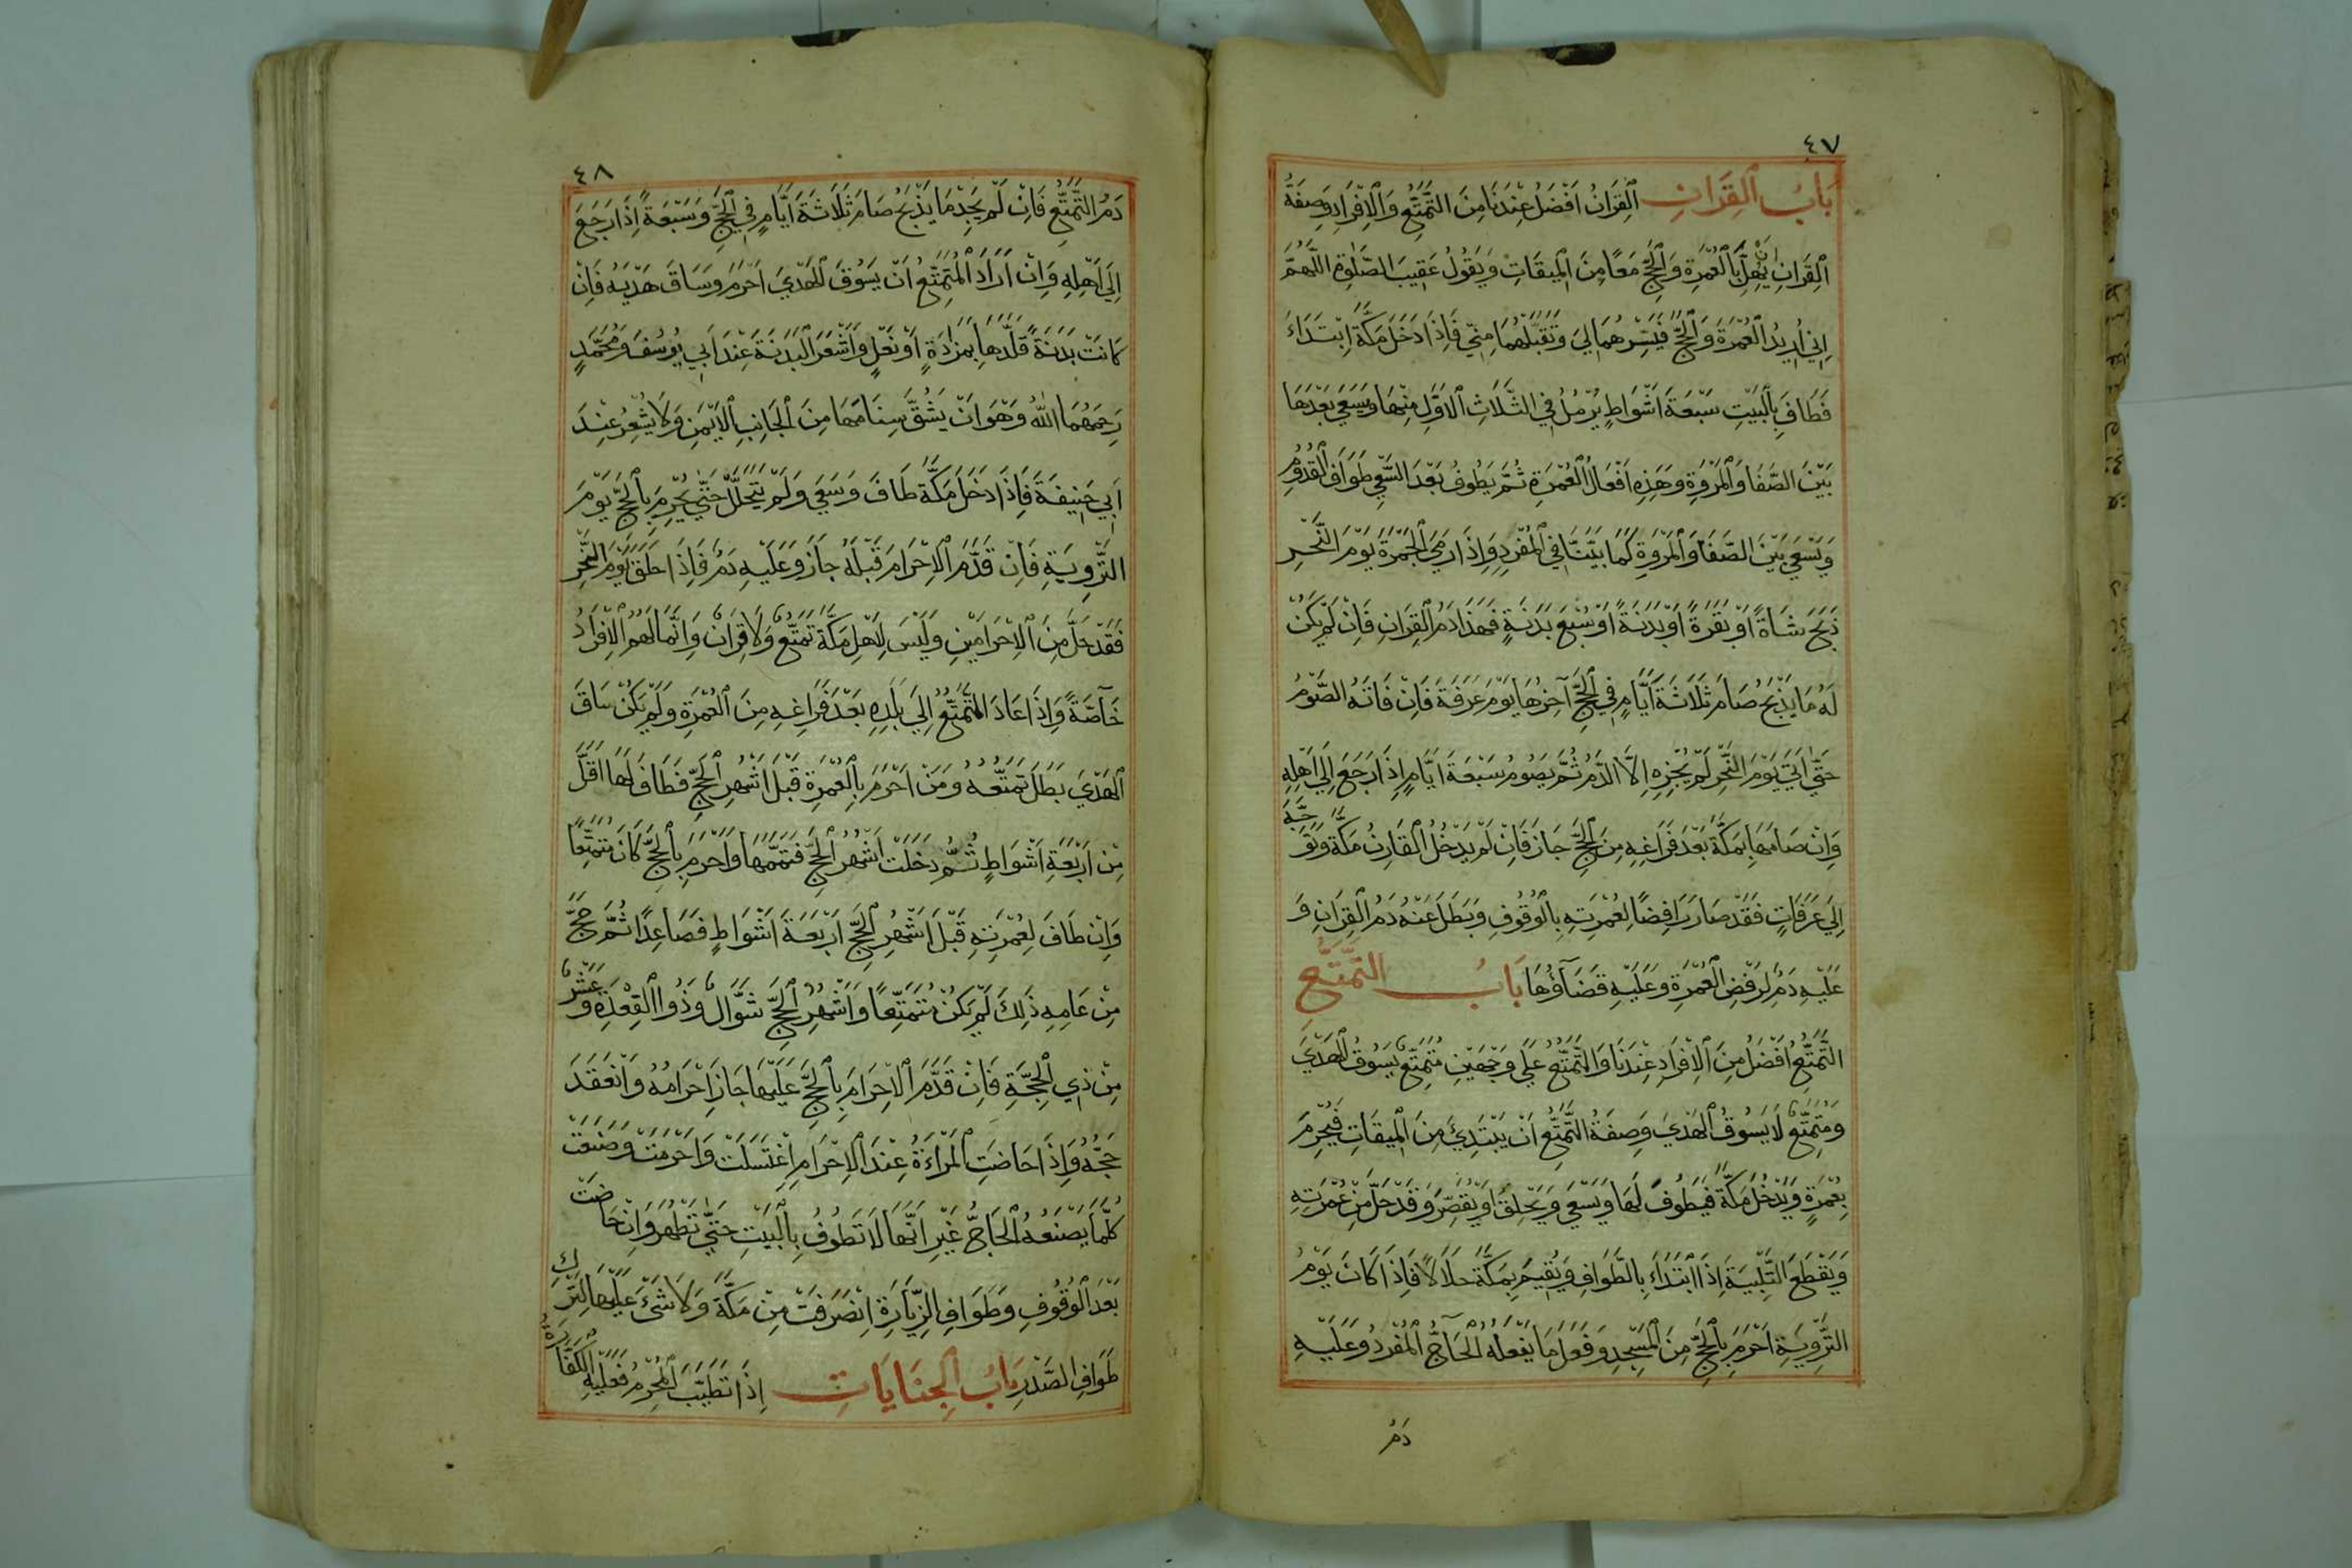 ٤٧
بَابُ الْقِرَانِ الْقِرَانُ اَفْضَلُ عِنْدَنَا مِنَ التَّمَتُّعِ وَالْاِفْرَادِ وَصِفَةُ
الْقِرَانِ اَنْ يُهِلَّ بِالْعُمْرَةِ وَالْحَجِّ مَعًا مِنَ الْمِيقَاتِ وَيَقُولُ عَقِيبَ الصَّلٰوةِ اللّٰهُمَّ
اِنِّي اُرِيدُ الْعُمْرَةَ وَالْحَجَّ فَيَسِّرْهُمَا لِيَ وَتَقَبَّلْهُمَا مِنِّي فَاِذَا دَخَلَ مَكَّةَ اِبْتَدَاءَ
فَطَافَ بِالْبَيْتِ سَبْعَةَ اَشْوَاطٍ يُرْمُلُ فِي الثَّلَاثِ الْاَوَّلِ مِنْهَا وَيَسْعَي بَعْدَهَا
بَيْنَ الصَّفَا وَالْمَرْوَةِ وَهَذِهِ اَفْعَالُ الْعُمْرَةِ ثُمَّ يَطُوفُ بَعْدَ السَّعْيِ طَوَافَ الْقُدُومِ
وَيَسْعَي بَيْنَ الصَّفَا وَالْمَرْوَةِ كَمَا بَيَّنَّا فِي الْمُفْرِدِ وَاِذَا رَمَيَ الْجَمْرَةَ يَوْمَ النَّحْرِ
ذَبَحَ شَاةً اَوْ بَقَرَةً اَوْ بَدَنَةً اَوْ سُبْعَ بَدَنَةٍ فَهَذَا دَمُ الْقِرَانِ فَاِنْ لَمْ يَكُنْ
لَهُ مَا يَذْبَحُ صَامَ ثَلَاثَةَ اَيَّامٍ فِي الْحَجِّ آخِرُهَا يَوْمَ عَرَفَةَ فَاِنْ فَاتَهُ الصَّوْمُ
حَتّٰي اَتَيَ يَوْمَ النَّحْرِ لَمْ يُجْزِهِ اِلَّا الدَّمُ ثُمَّ يَصُومُ سَبْعَةَ اَيَّامٍ اِذَا رَجَعَ اِلَي اَهْلِهِ
وَاِنْ صَامَهَا بِمَكَّةَ بَعْدَ فَرَاغِهِ مِنَ الْحَجِّ جَازَ فَاِنْ لَمْ يَدْخُلِ الْقَارِنُ مَكَّةَ وَتَوَجَّهَ
اِلَيَ عَرَفَاتٍ فَقَدْ صَارَ رَافِضًا لِعُمْرَتِهِ بِالْوُقُوفِ وَبَطَلَ عَنْهُ دَمُ الْقِرَانِ وَ
عَلَيْهِ دَمٌ لِرَفْضِ الْعُمْرَةِ وَعَلَيْهِ قَضَآؤُهَا بَابُ التَّمَتُّعِ
التَّمَتُّعُ اَفْضَلُ مِنَ الْاِفْرَادِ عِنْدَنَا وَالتَّمَتُّعُ عَلَي وَجْهَيْنِ مُتَمَتِّعٌ يَسُوقُ الْهَدْيَ
وَمُتَمَتِّعٌ لَا يَسُوقُ الْهَدْيَ وَصِفَةُ التَّمَتُّعِ اَنْ يَبْتَدِئَ مِنَ الْمِيقَاتِ فَيُحْرِمَ
بِعُمْرَةٍ وَيَدْخُلَ مَكَّةَ فَيَطُوفَ لَهَا وَيَسْعَي وَيَحْلِقُ اَوْ يُقَصِّرَ وَقَدْ حَلَّ مِنْ عُمْرَتِهِ
وَيَقْطَعُ التَّلْبِيَةَ اِذَا ابْتَدَاءَ بِالطَّوَافِ وَيُقِيمُ بِمَكَّةَ حَلَالًا فَاِذَا كَانَ يَوْمُ
التَّرْوِيَةِ اَحْرَمَ بِالْحَجِّ مِنَ الْمَسْجِدِ وَفَعَلَ مَا يَفْعَلُهُ الْحَآجُّ الْمُفْرِدُ وَعَلَيْهِ
دَمُ
٤٨
دَمُ التَّمَتُّعِ فَاِنْ لَمْ يَجِدْ مَا يَذْبَحُ صَامَ ثَلَاثَةَ اَيَّامٍ فِي الْحَجِّ وَسَبْعَةً اِذَا رَجَعَ
اِلَي اَهْلِهِ وَاِنْ اَرَادَ الْمُتَمَتِّعُ اَنْ يَسُوقَ الْهَدْيَ اَحْرَمَ وَسَاقَ هَدْيَهُ فَاِنْ
كَانَتْ بَدَنَةً قَلَّدَهَا بِمَزَادَةٍ اَوْ نَعْلٍ وَاَشْعَرَ الْبَدَنَةَ عِنْدَ اَبِي يُوسُفَ وَمُحَمَّدٍ
رَحِمَهُمَا اللّٰهُ وَهُوَ اَنْ يَشُقَّ سِنَامَهَا مِنَ الْجَانِبِ الْاَيْمَنِ وَلَا يُشْعِرُ عِنْدَ
اَبِي حَنِيفَةَ فَاِذَا دَخَلَ مَكَّةَ طَافَ وَسَعَي وَلَمْ يَتَحَلَّلْ حَتّٰي يُحْرِمَ بِالْحَجِّ يَوْمَ
التَّرْوِيَةِ فَاِنْ قَدَّمَ الْاِحْرَامَ قَبْلَهُ جَازَ وَعَلَيْهِ دَمٌ فَاِذَا حَلَقَ يَوْمَ النَّحْرِ
فَقَدْ حَلَّ مِنَ الْاِحْرَامَيْنِ وَلَيْسَ لِاَهْلِ مَكَّةَ تَمَتُّعٌ وَلَا قِرَانٌ وَاِنَّمَا لَهُمُ الْاِفْرَادُ
خَآصَّةً وَاِذَا عَادَ الْمُتَمَتِّعُ اِلَي بَلَدِهِ بَعْدَ فَرَاغِهِ مِنَ الْعُمْرَةِ وَلَمْ يَكُنْ سَاقَ
الْهَدْيَ بَطَلَ تَمَتُّعُهُ وَمَنْ اَحْرَمَ بِالْعُمْرَةِ قَبْلَ اَشْهُرِ الْحَجِّ فَطَافَ لَهَا اَقَلَّ
مِنْ اَرْبَعَةِ اَشْوَاطٍ ثُمَّ دَخَلَتْ اَشْهُرُ الْحَجِّ فَتَمَّمَهَا وَاَحْرَمَ بِالْحَجِّ كَانَ مُتَمَتِّعًا
وَاِنْ طَافَ لِعُمْرَتِهِ قَبْلَ اَشْهُرِ الْحَجِّ اَرْبَعَةَ اَشْوَاطٍ فَصَاعِدًا ثُمَّ حَجَّ
مِنْ عَامِهِ ذَلِكَ لَمْ يَكُنْ مُتَمَتِّعًا وَاَشْهُرُ الْحَجِّ شَوَّالٌ وَذُوا الْقِعْدَةِ وَعَشْرٌ
مِنْ ذِي الْحِجَّةِ فَاِنْ قَدَّمَ الْاِحْرَامَ بِالْحَجِّ عَلَيْهَا جَازَ اِحْرَامُهُ وَانْعَقَدَ
حَجُّهُ وَاِذَا حَاضَتِ الْمَرْاَءَةُ عِنْدَ الْاِحْرَامِ اِغْتَسَلَتْ وَاَحْرَمَتْ وَصَنَعَتْ
كُلَّمَا يَصْنَعُهُ الْحَاجُّ غَيْرِ اَنَّهَا لَا تَطُوفُ بِالْبَيْتِ حَتّٰي تَطْهُرَ وَاِنْ حَاضَتْ
بَعْدَ الْوُقُوفِ وَطَوَافِ الزِّيَارَةِ اِنْصَرَفَتْ مِنْ مَكَّةَ وَلَا شَئَ عَلَيْهَا لِتَرْكِ
طَوَافِ الصَّدْرِ بَابُ الْجِنَايَاتِ اِذَا تَطَيَّبَ الْمُحْرِمُ فَعَلَيْهِ الْكَفَّارَةُ